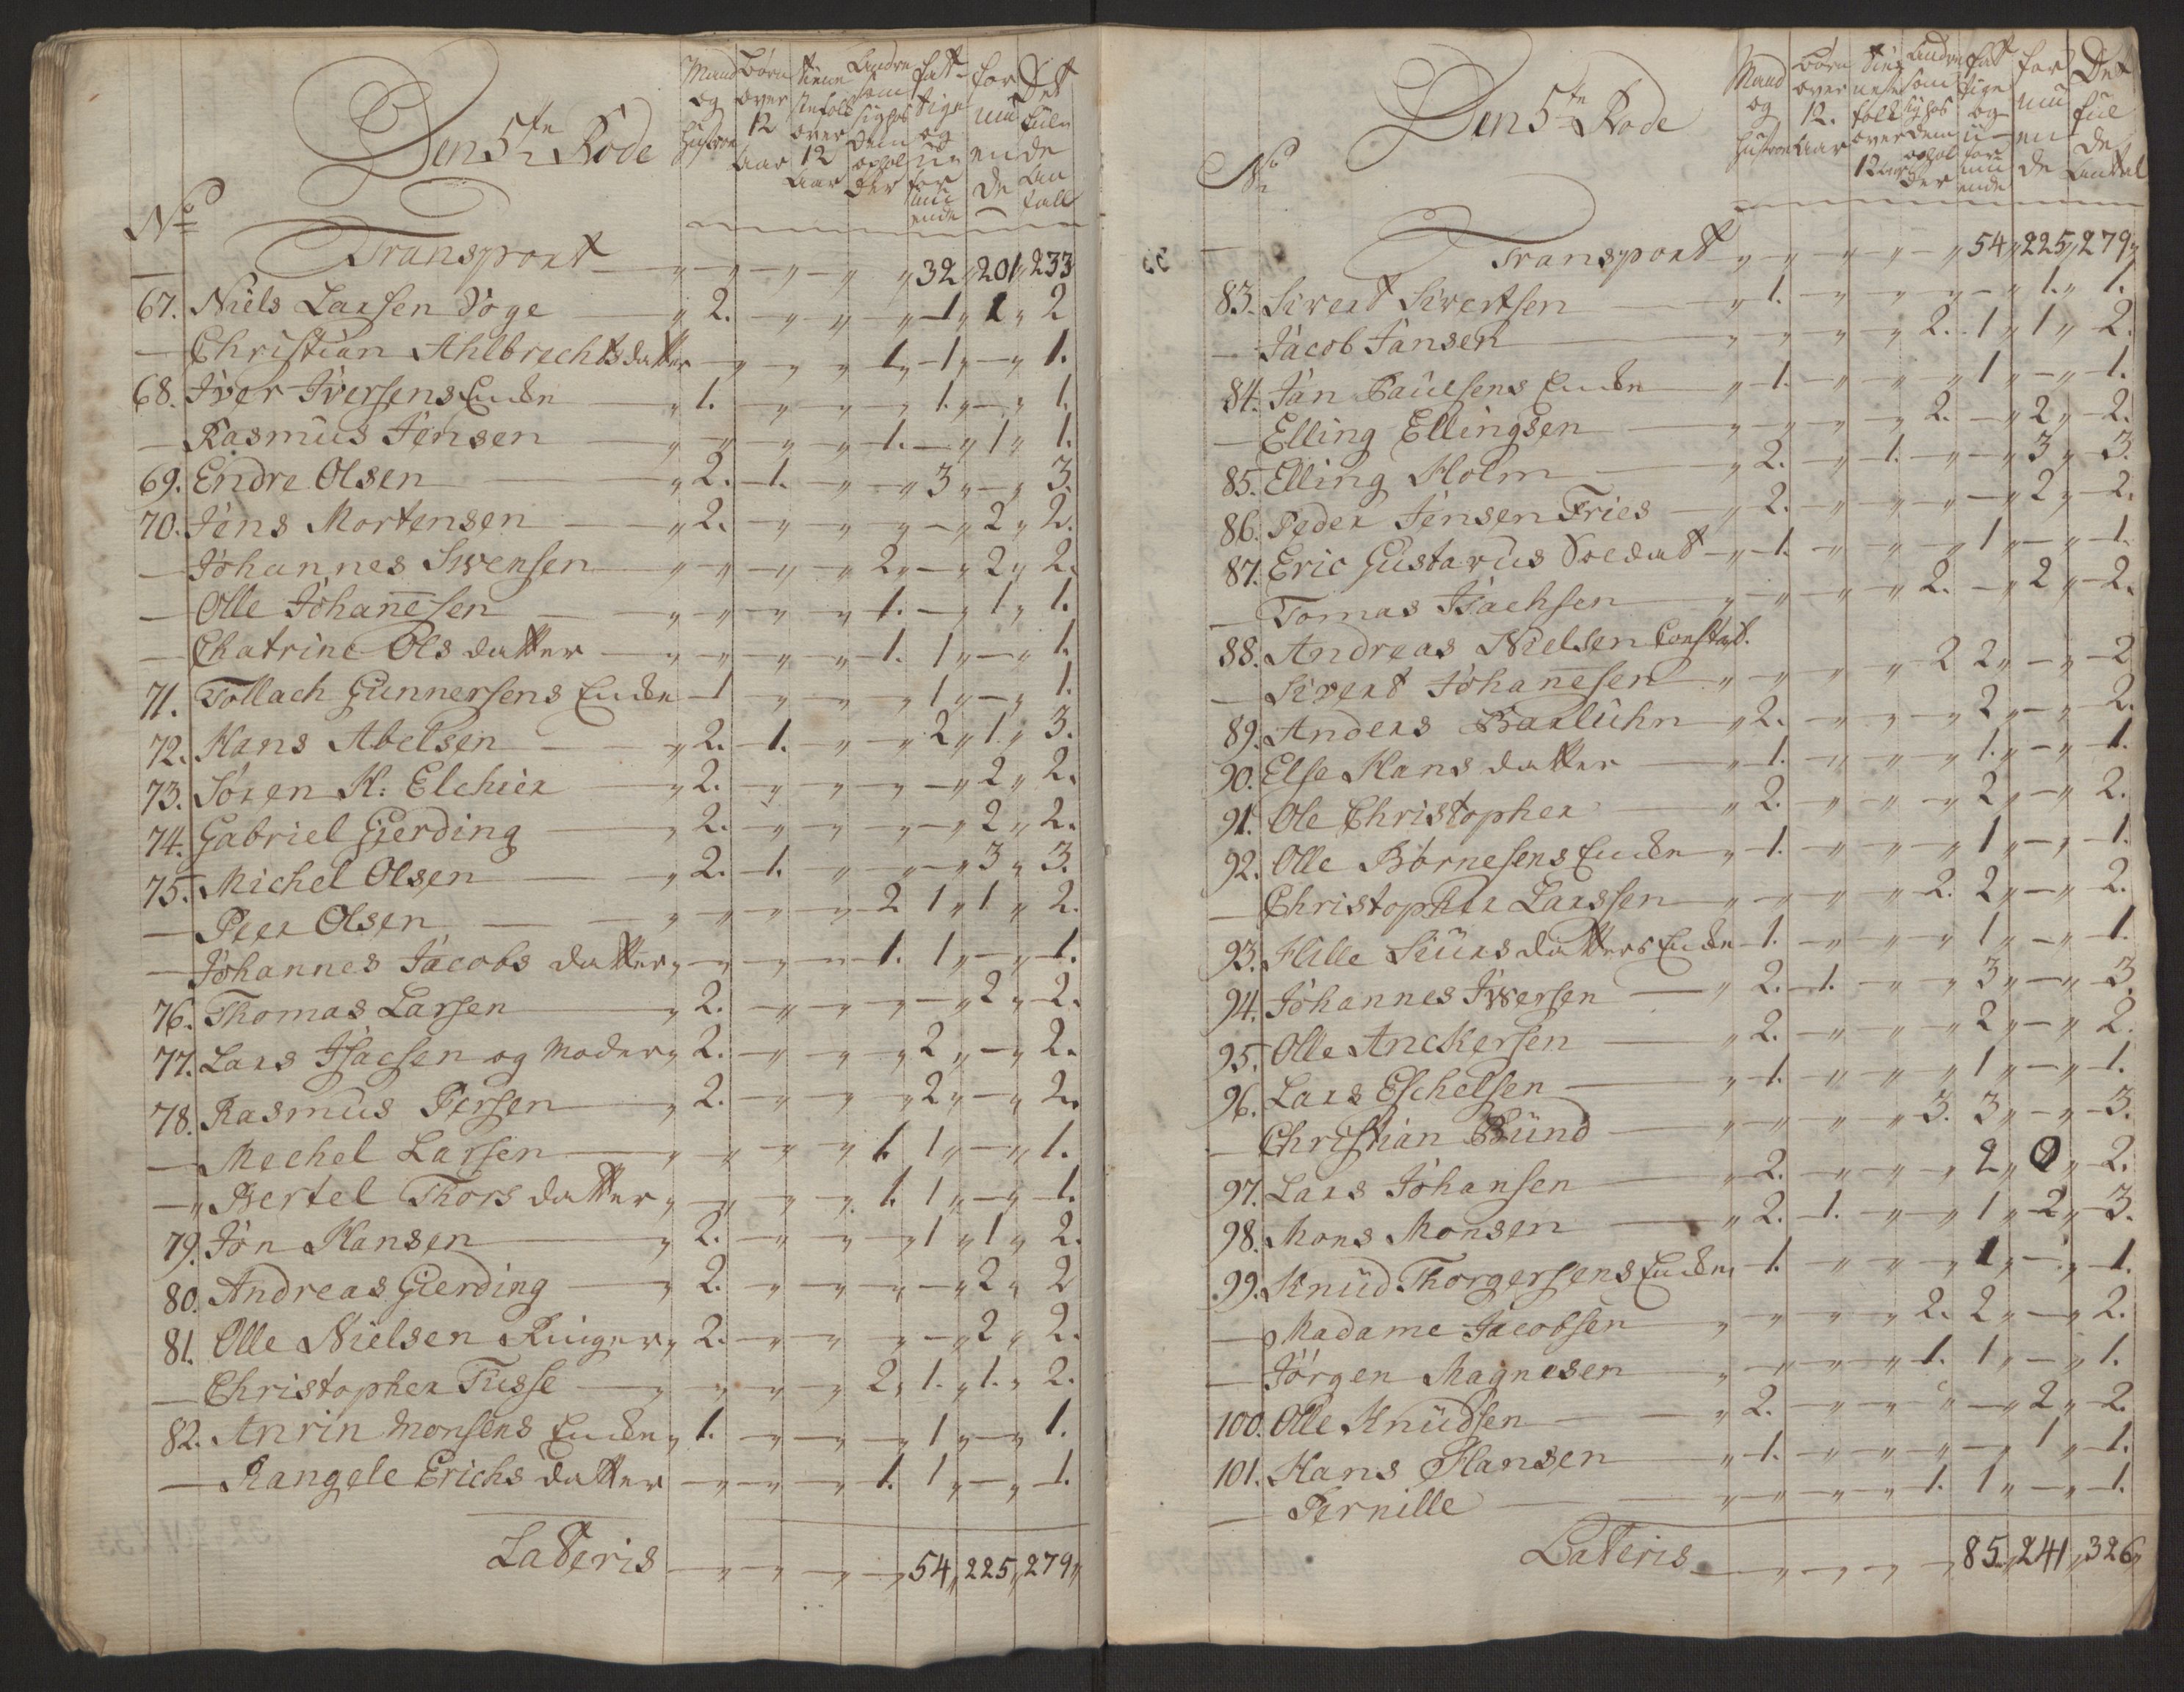 Den 5te Rode
Mand og Hustroe
Børn over 12 Aar
tiene stefolk over 12 Aar
Andre som sig hos dem opholder
fattige og uformuende
formuende
Det fulde Antall
No
Transport 32 201 233
67. Niels Larsen Voge 2. 1 1 2
Christian Ahlbrechtsdatter 1 1 1.
68. Iver Iversens Encke 1. 1. 1
Rasmus Jensen 1. 1 1.
69. Endre Olsen 2. 1. 3 3.
70. Jens Mortensen 2. 2 2.
Johannes Swensen 2 2 2.
Olle Johannesen 1. 1 1.
Chatrine Ols datter 1. 1 1.
71. Tollach Gunnersens Encke 1 1 1.
72. Hans Abelsen 2. 1. 2 1 3.
73. Søren K: Elchier 2. 2 2.
74. Gabriel Gierding 2. 2 2.
75. Michel Olsen 2. 1. 3 3.
Peer Olsen 2 1 1 2.
Johannes Jacobs datter 1. 1 1.
76. Thomas Larsen 2. 2 2.
77. Lars Isacsen og Moder 2. 2 2.
78. Rasmus Persen 2. 2 2.
Mechel Larsen 1. 1 1.
Bertel Thors datter 1. 1 1.
79. Jón Hansen 2. 1 1 2.
80. Andreas Gierding 2. 2 2
81. Olle Nielsen Ringer 2. 2 2.
Christopher Tusse 2 1. 1. 2.
82. Anrin Monsens Encke 1. 1 1.
Rangele Erichs datter 1. 1 1.
Lateris 54 225 279
Den 5te Rode
Mand og Hustroe
Børn over 12. Aar
tienestefolk over 12 Aar
Andre som sig hos dem opholder
fattige og uformuende
formuende
Det fulde Antal
No
Transport 54 225 279
83. Sivert Sivertsen 1. 1. 1.
Jacob Jansen 2. 1 1 2.
84. Jan Paulsens Encke 1. 1 1.
Elling Ellingsen 2. 2 2.
85. Elling Holm 2. 1. 3 3.
86. Peder Jensen Fries 2. 2 2.
87. Eric Gustavus Soldat 1. 1 1.
Tomas Isachsen 2. 2 2.
88. Andreas Nielsen Constab.
Sivert Johanesen 2 2 2
89. Anders Barluhn 2. 2 2.
90. Else Hans datter 1. 1. 1.
91. Ole Christopher 2. 2 2.
92. Olle Børnesens Encke 1. 1 1.
Christopher Larssen 2. 2 2.
93. Hille Siursdatters Encke 1. 1 1.
94. Johannes Iversen 2. 1. 3 3.
95. Olle Anckersen 2. 2 2.
96. Lars Elchelsen 1. 1 1.
Christian Bünd 3. 3 3.
97. Lars Johansen 2. 2 0 2.
98. Mons Monsen 2. 1. 1 2 3.
99. Knud Thorgersens Encke 1. 1 1.
Madame Jacobsen 2. 2 2.
Jørgen Magnesen 1. 1 1.
100. Olle Knudsen 2. 2 2.
101. Hans Hansen 1. 1 1.
Pernille 1. 1 1.
Lateris 85 241 326